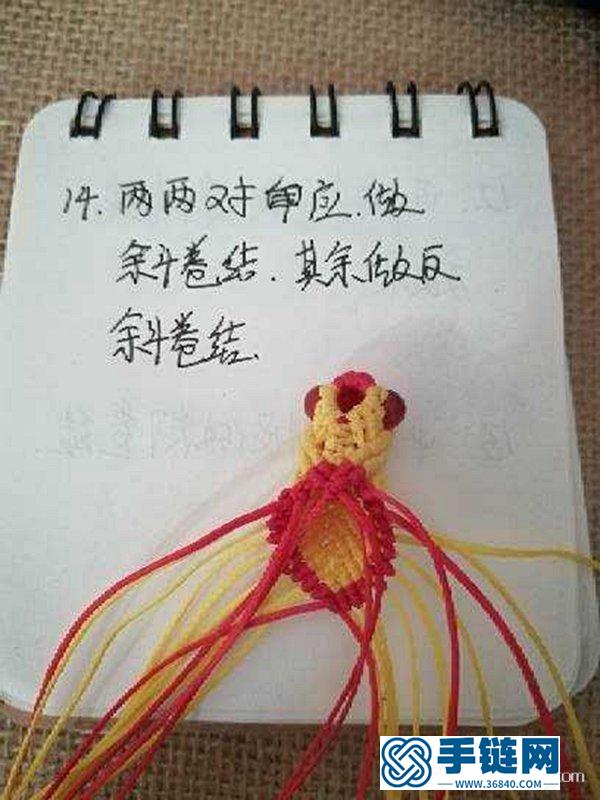 14. 两两对单应.做
余斗卷结.其余做反
余斗卷结.
手链网
WWW.36840.COM